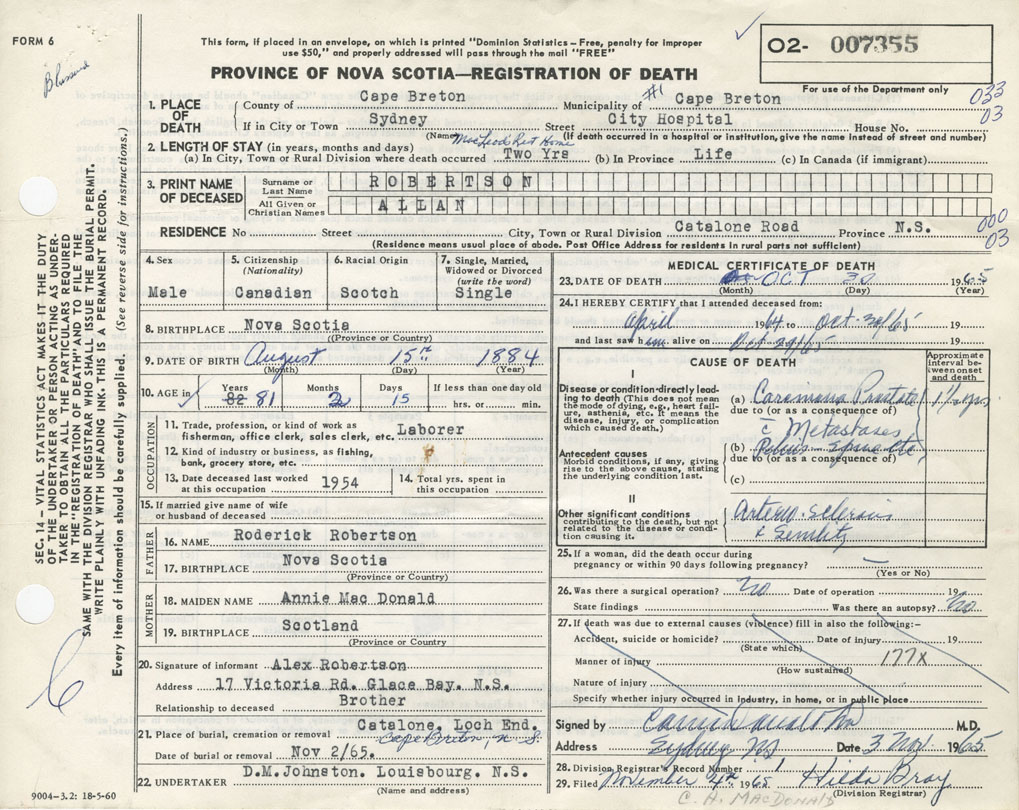 FORM 6
This form, if placed in an envelope, on which is printed "Dominion Statistics – Free, penalty for improper
use $50," and properly addressed will pass through the mail "FREE"
O2- 007355
For use of the Department only
PROVINCE OF NOVA SCOTIA—REGISTRATION OF DEATH
033
03
1. PLACE OF DEATH
County of Cape Breton Municipality of #1 Cape Breton
If in City or Town Sydney Street City Hospital House No.
(Name (If death occurred in a hospital or institution, give the name instead of street and number)
MacLeod Rest Home
2. LENGTH OF STAY (in years, months and days)
(a) In City, Town or Rural Division where death occurred Two Yrs (b) In Province Life (c) In Canada (if immigrant)
3. PRINT NAME OF DECEASED
Surname or Last Name ROBERTSON
All Given or Christian Names ALLAN
000
03
RESIDENCE No Street City, Town or Rural Division Catalone Road Province N.S.
(Residence means usual place of abode. Post Office Address for residents in rural parts not sufficient)
4. Sex Male
5. Citizenship (Nationality) Canadian
6. Racial Origin Scotch
7. Single, Married, Widowed or Divorced (write the word) Single
8. BIRTHPLACE Nova Scotia
(Province or Country)
9. DATE OF BIRTH August 15th 1884
(Month) (Day) (Year)
10. AGE in Years 82 81 Months 2 Days 15 If less than one day old hrs. or min.
OCCUPATION
11. Trade, profession, or kind of work as fisherman, office clerk, sales clerk, etc. Laborer
12. Kind of industry or business, as fishing, bank, grocery store, etc.
13. Date deceased last worked at this occupation 1954
14. Total yrs. spent in this occupation
15. If married give name of wife or husband of deceased
FATHER
16. NAME Roderick Robertson
17. BIRTHPLACE Nova Scotia
(Province or Country)
MOTHER
18. MAIDEN NAME Annie Mac Donald
19. BIRTHPLACE Scotland
(Province or Country)
20. Signature of informant Alex Robertson
Address 17 Victoria Rd. Glace Bay. N.S.
Relationship to deceased Brother
21. Place of burial, cremation or removal Catalone, Loch End.
Cape Breton, N.S.
Date of burial or removal Nov 2/65.
22. UNDERTAKER D.M.Johnston. Louisbourg. N.S.
(Name and address)
MEDICAL CERTIFICATE OF DEATH
23. DATE OF DEATH OCT 30 1965
(Month) (Day) (Year)
24. I HEREBY CERTIFY that I attended deceased from:
April 1964 to Oct 30/65 19
and last saw him alive on Oct 29/65 19
CAUSE OF DEATH
Approximate interval between onset and death
I
Disease or condition directly leading to death (This does not mean the mode of dying, e.g., heart failure, asthenia, etc. It means the disease, injury, or complication which caused death.)
(a) Prostate
due to (or as a consequence of)
c̄ Metastases
Antecedent causes
Morbid conditions, if any, giving rise to the above cause, stating the underlying condition last.
(b) Pelvis
due to (or as a consequence of)
(c)
II
Other significant conditions contributing to the death, but not related to the disease or condition causing it.
Arterio-Sclerosis
& Senility
25. If a woman, did the death occur during pregnancy or within 90 days following pregnancy? —
(Yes or No)
26. Was there a surgical operation? No Date of operation 19
State findings Was there an autopsy? No
27. If death was due to external causes (violence) fill in also the following:–
Accident, suicide or homicide? Date of injury 19
(State which)
Manner of injury 177X
(How sustained)
Nature of injury
Specify whether injury occurred in industry, in home, or in public place
Signed by M.D.
Address Sydney NS Date 3 Nov 1965
28. Division Registrar's Record Number 1
29. Filed November 4th 1965 Hilda Bray
(Division Registrar)
C. H. MACDONALD
SEC. 14 – VITAL STATISTICS ACT MAKES IT THE DUTY
OF THE UNDERTAKER OR PERSON ACTING AS UNDER-
TAKER TO OBTAIN ALL THE PARTICULARS REQUIRED
IN THE "REGISTRATION OF DEATH" AND TO FILE THE
SAME WITH THE DIVISION REGISTRAR WHO SHALL ISSUE THE BURIAL PERMIT.
WRITE PLAINLY WITH UNFADING INK. THIS IS A PERMANENT RECORD.
Every item of information should be carefully supplied. (See reverse side for instructions.)
6
9004-3.2: 18-5-60